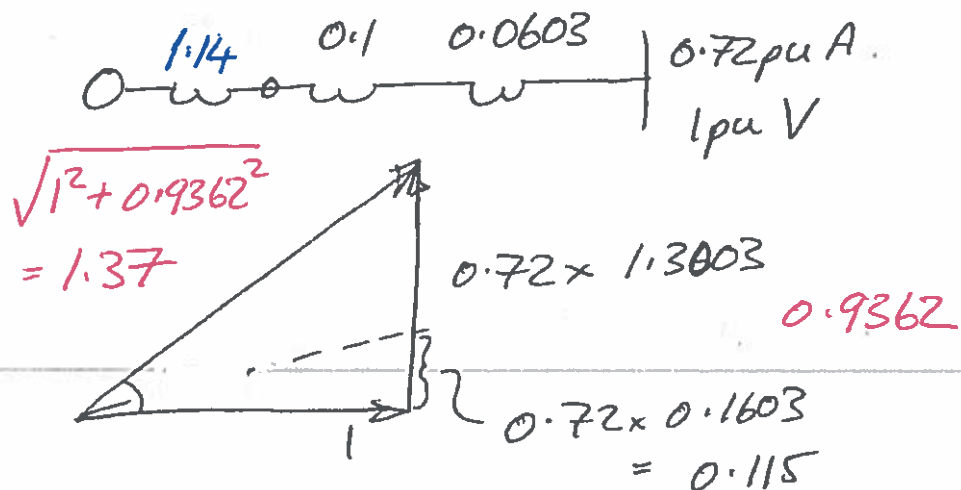 1.14 0.1 0.0603
0.72pu A.
1pu V
√1² + 0.9362²
= 1.37
0.72 × 1.3003
0.9362
1
0.72 × 0.1603
= 0.115